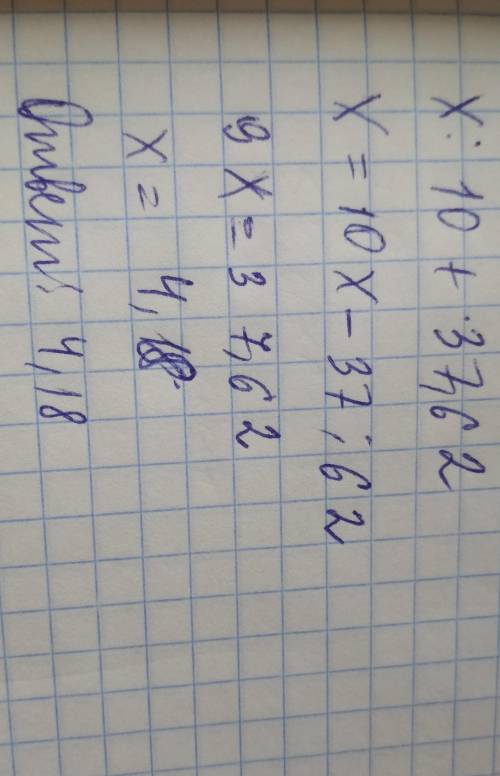 X: 10 + 37,62
X = 10X - 37,62
9X = 37,62
X = 4,18
Ответ: 4,18